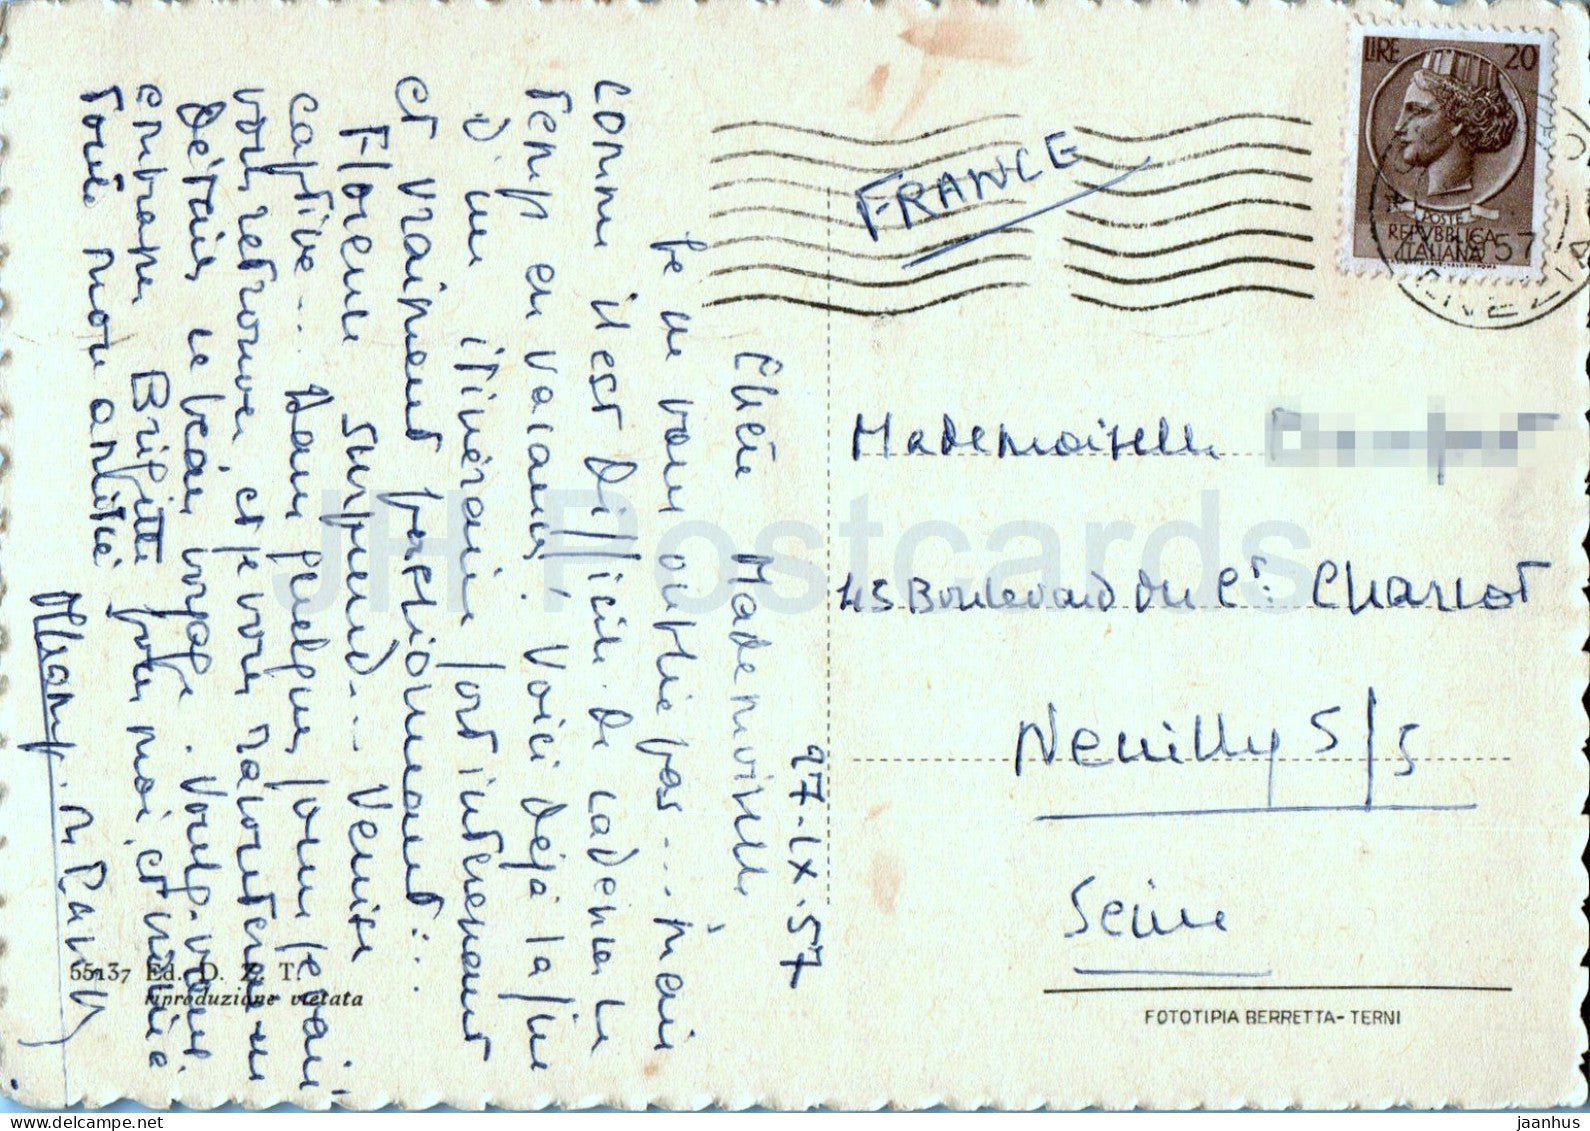 27.IX.57
Chère Mademoiselle
Je ne vous oublie pas... mais
comme il est difficile de cadenser le
temps en vacances! Voici déjà la fin
d'un itinéraire fort intéressant
et vraiment passionnant...
Florence surprend... Venise
captive... Dans quelques jours je vais
vous retrouver, et je vous raconterai en
détails ce beau voyage. Voulez-vous
embrasser Brigitte pour moi, et
toute mon amitié
FRANCE
LIRE 20
POSTE
REPVBBLICA
ITALIANA
57
VENEZIA
Mademoiselle
45 Boulevard du Ct. Charcot
Neuilly S/S
Seine
55137 Ed. D. Z. T.
riproduzione vietata
FOTOTIPIA BERRETTA - TERNI
JH Postcards
jaanhus